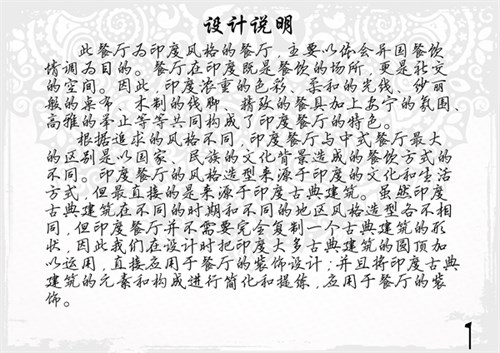 设计说明
此餐厅为印度风格的餐厅，主要以体会异国餐饮
情调为目的。餐厅在印度既是餐饮的场所，更是社交
的空间。因此，印度浓重的色彩、柔和的光线、纱丽
般的桌布、木制的线脚、精致的餐具加上安宁的氛围、
高雅的举止等等共同构成了印度餐厅的特色。
根据追求的风格不同，印度餐厅与中式餐厅最大
的区别是以国家、民族的文化背景造成的餐饮方式的
不同。印度餐厅的风格造型来源于印度的文化和生活
方式，但最直接的是来源于印度古典建筑。虽然印度
古典建筑在不同的时期和不同的地区风格造型各不相
同，但印度餐厅并不需要完全复制一个古典建筑的形
状，因此我们在设计时把印度大多古典建筑的圆顶加
以运用，直接应用于餐厅的装饰设计；并且将印度古典
建筑的元素和构成进行简化和提炼，应用于餐厅的装
饰。
1